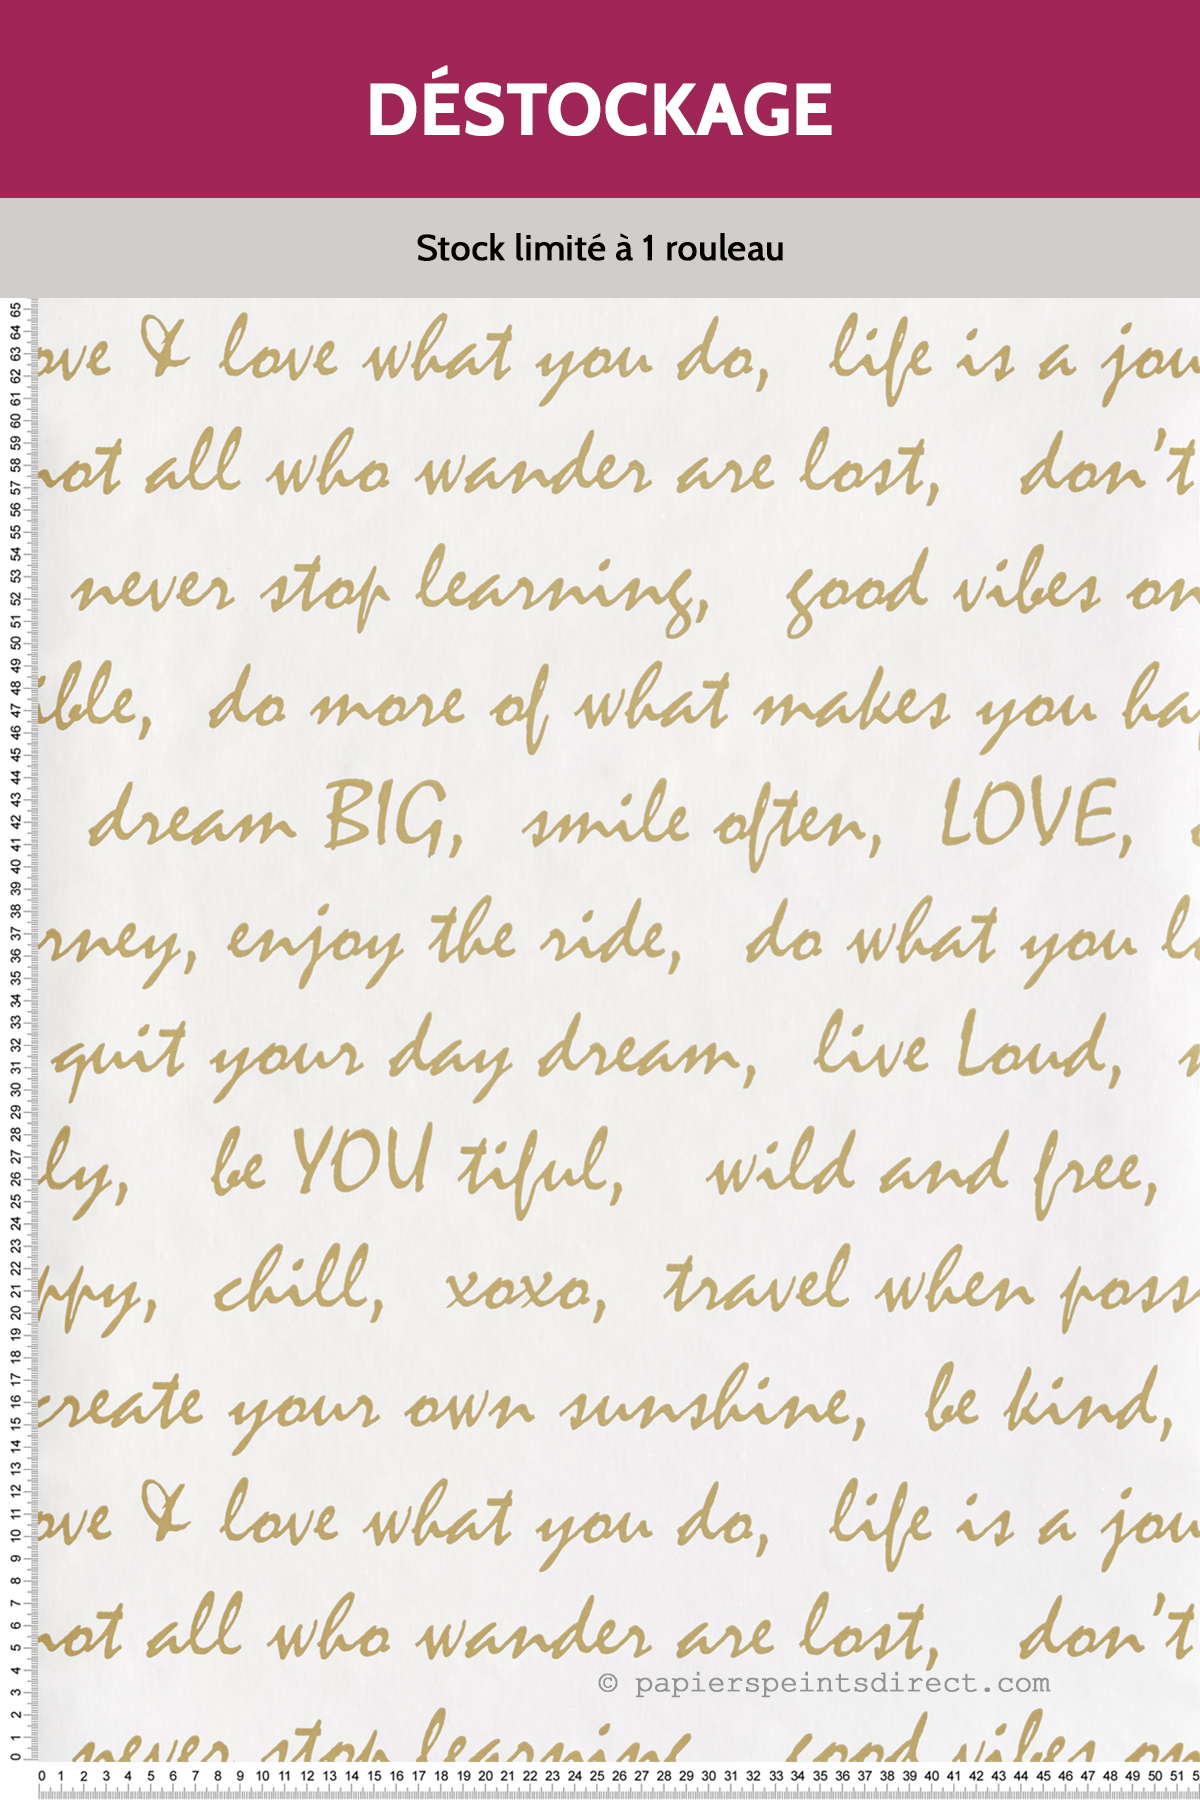 DÉSTOCKAGE
Stock limité à 1 rouleau
ove & love what you do, life is a jou
not all who wander are lost, don't
never stop learning, good vibes on
ible, do more of what makes you hap
dream BIG, smile often, LOVE,
rney, enjoy the ride, do what you lo
quit your day dream, live Loud,
ly, be YOU tiful, wild and free,
ppy, chill, xoxo, travel when poss
create your own sunshine, be kind,
ove & love what you do, life is a jou
not all who wander are lost, don't
© papierspeintsdirect.com
never stop learning good vibes on
65 64 63 62 61 60 59 58 57 56 55 54 53 52 51 50 49 48 47 46 45 44 43 42 41 40 39 38 37 36 35 34 33 32 31 30 29 28 27 26 25 24 23 22 21 20 19 18 17 16 15 14 13 12 11 10 9 8 7 6 5 4 3 2 1 0
0 1 2 3 4 5 6 7 8 9 10 11 12 13 14 15 16 17 18 19 20 21 22 23 24 25 26 27 28 29 30 31 32 33 34 35 36 37 38 39 40 41 42 43 44 45 46 47 48 49 50 51